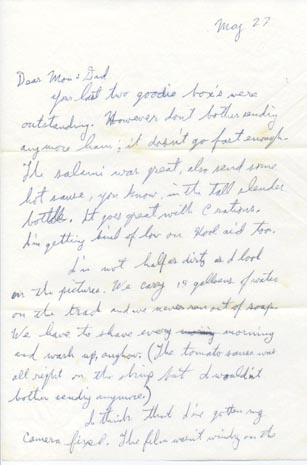 May 27
Dear Mom & Dad
Your last two goodie box's were
outstanding. However don't bother sending
anymore ham; it doesn't go fast enough.
The salami was great, also send some
hot sauce, you know, in the tall slender
bottle. It goes great with C rations.
I'm getting kind of low on Kool aid too.
I'm not half as dirty as I look
on the pictures. We carry 19 gallons of water
on the track and we never run out of soap.
We have to shave every morning
and wash up, anyhow. (The tomato sauce was
all right on the shrimp but I wouldn't
bother sending anymore.)
I think that I've gotten my
camera fixed. The film wasn't winding on the